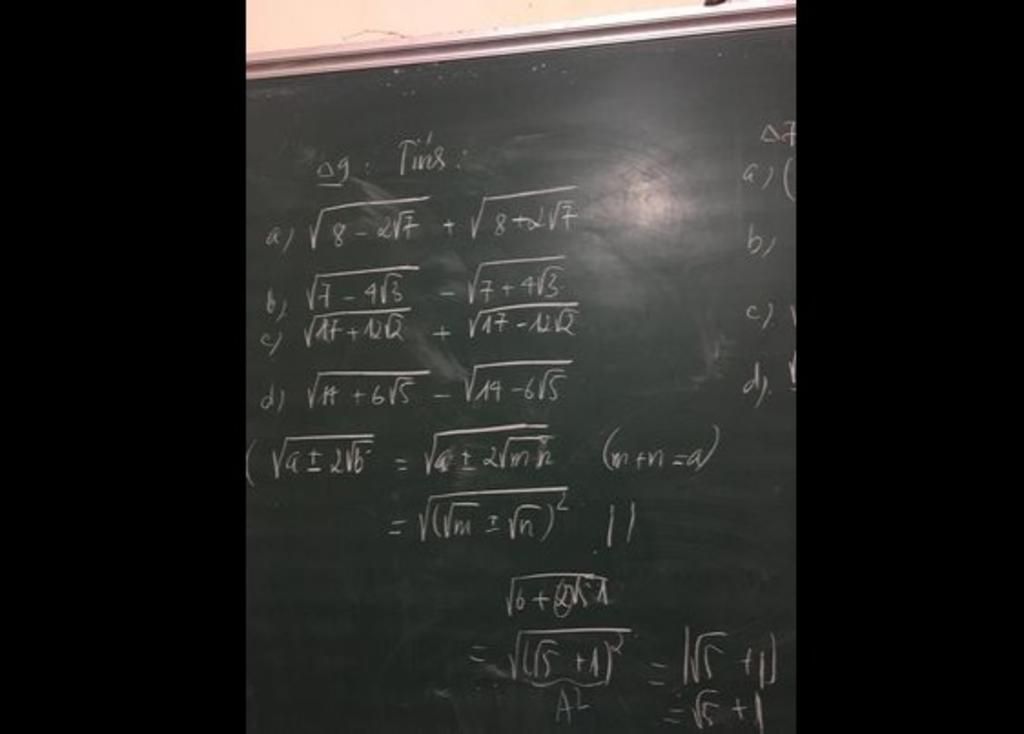 Δ9: Tính:
a) √(8 - 2√7) + √(8 + 2√7)
b) √(7 - 4√3) - √(7 + 4√3)
c) √(17 + 12√2) + √(17 - 12√2)
d) √(14 + 6√5) - √(14 - 6√5)
(√(a ± 2√b) = √(a ± 2√mn) (m+n=a)
= √((√m ± √n)²) ||
√(6 + 2√5·1)
= √((√5 + 1)²) = |√5 + 1|
A² = √5 + 1
Δ7
a) (
b)
c) √
d). √